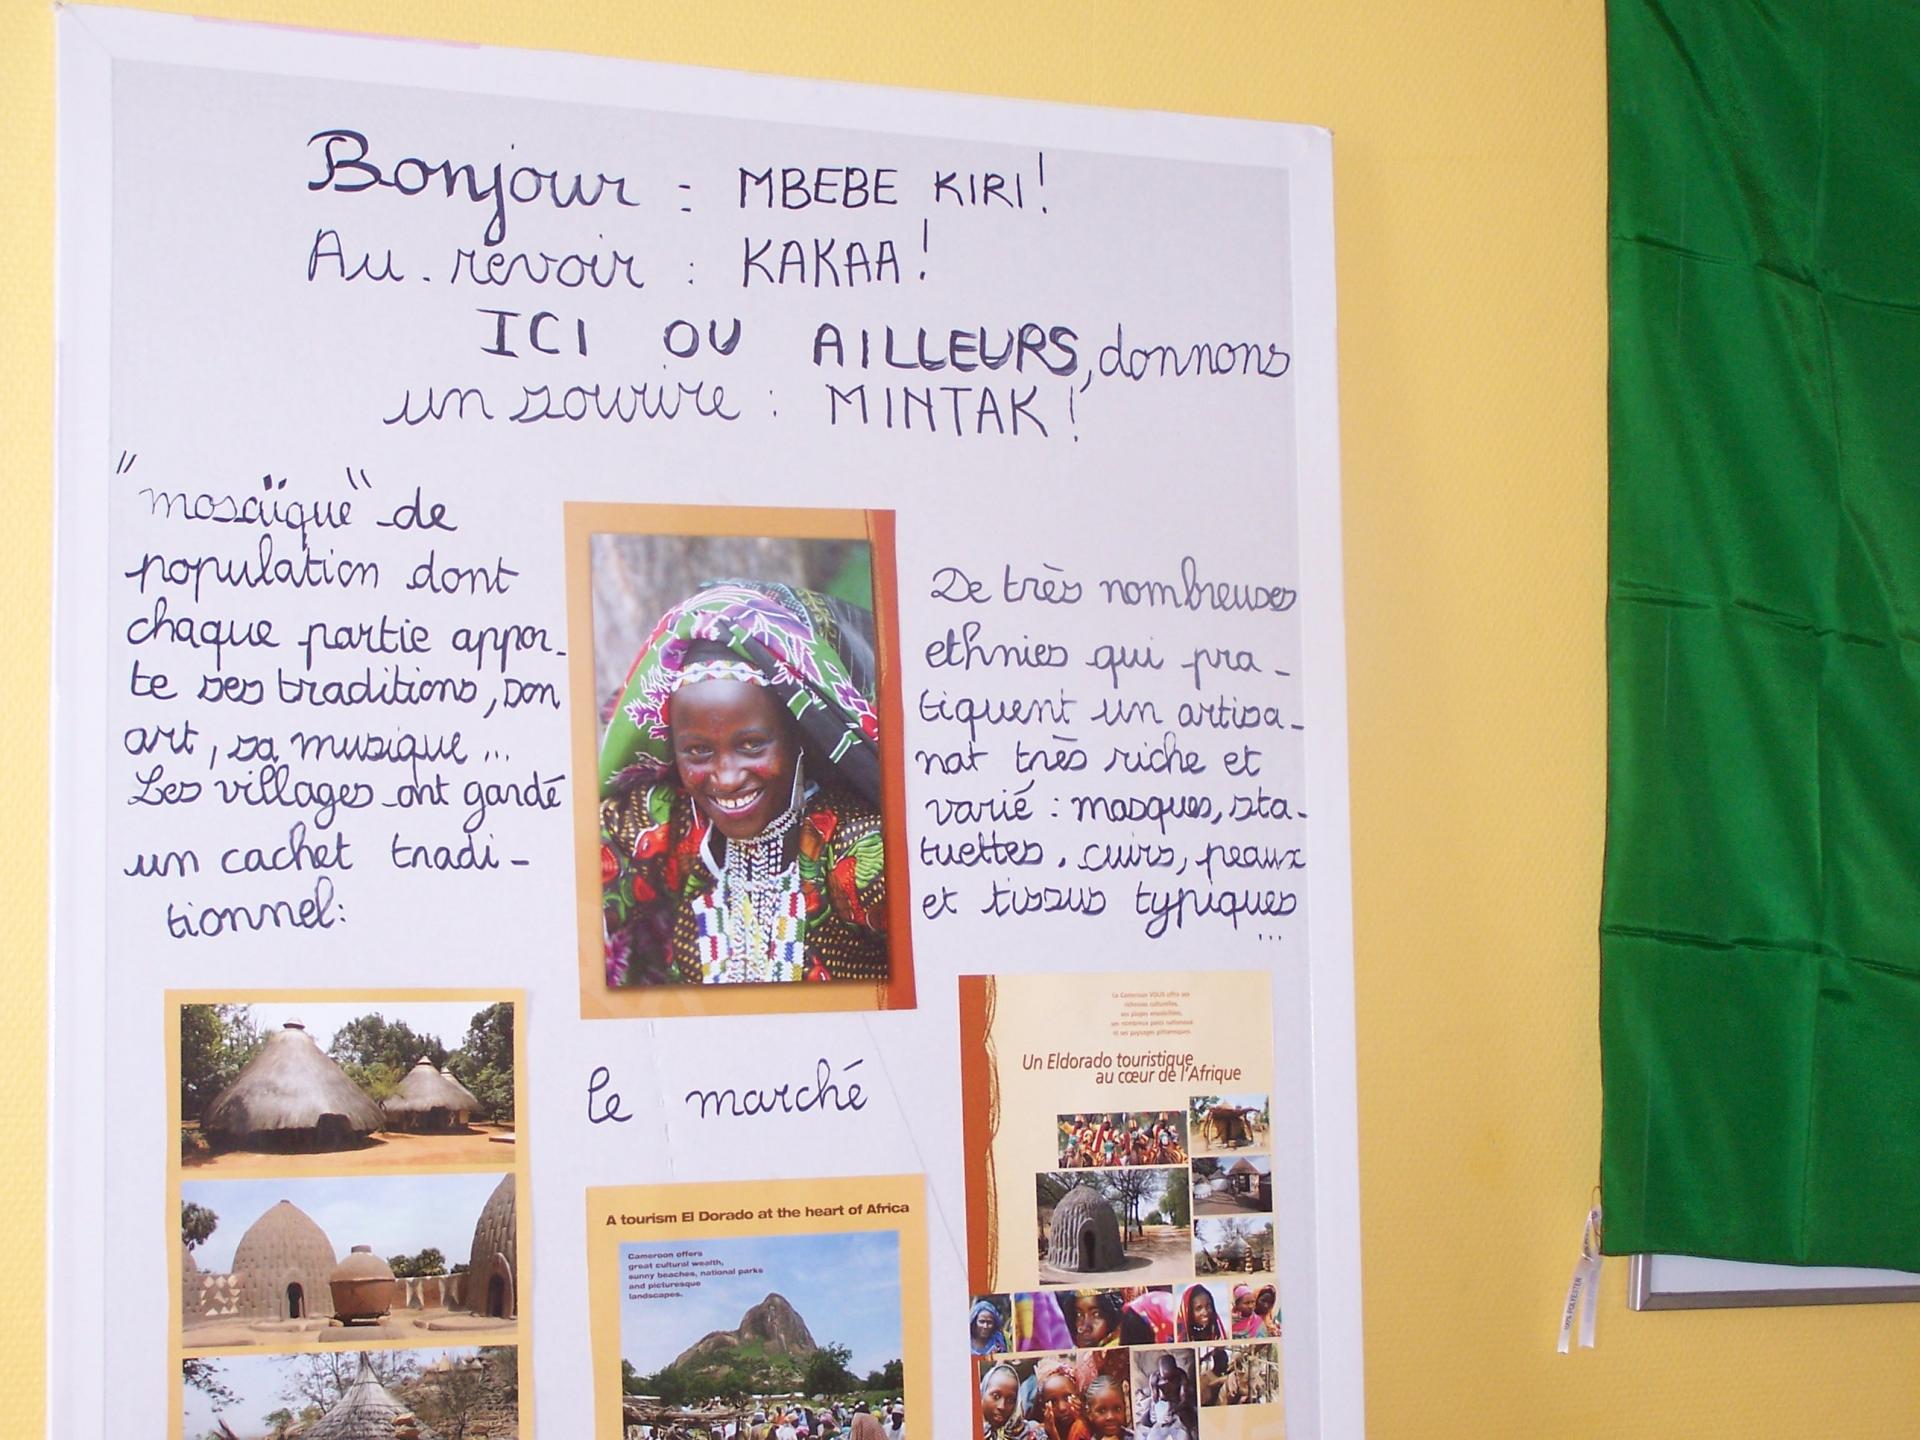 Bonjour : MBEBE KIRI !
Au . revoir : KAKAA !
ICI OU AILLEURS, donnons
un sourire : MINTAK !
"mosaïque" de
population dont
chaque partie appor-
te ses traditions, son
art, sa musique ...
Les villages ont gardé
un cachet tradi-
tionnel:
De très nombreuses
ethnies qui pra-
tiquent un artisa-
nat très riche et
varié : masques, sta-
tuettes, cuirs, peaux
et tissus typiques
...
le marché
A tourism El Dorado at the heart of Africa
Cameroon offers
great cultural wealth,
sunny beaches, national parks
and picturesque
landscapes.
Le Cameroun VOUS offre ses
richesses culturelles,
ses plages ensoleillées,
ses nombreux parcs nationaux
et ses paysages pittoresques
Un Eldorado touristique
au cœur de l'Afrique
100% POLYESTER